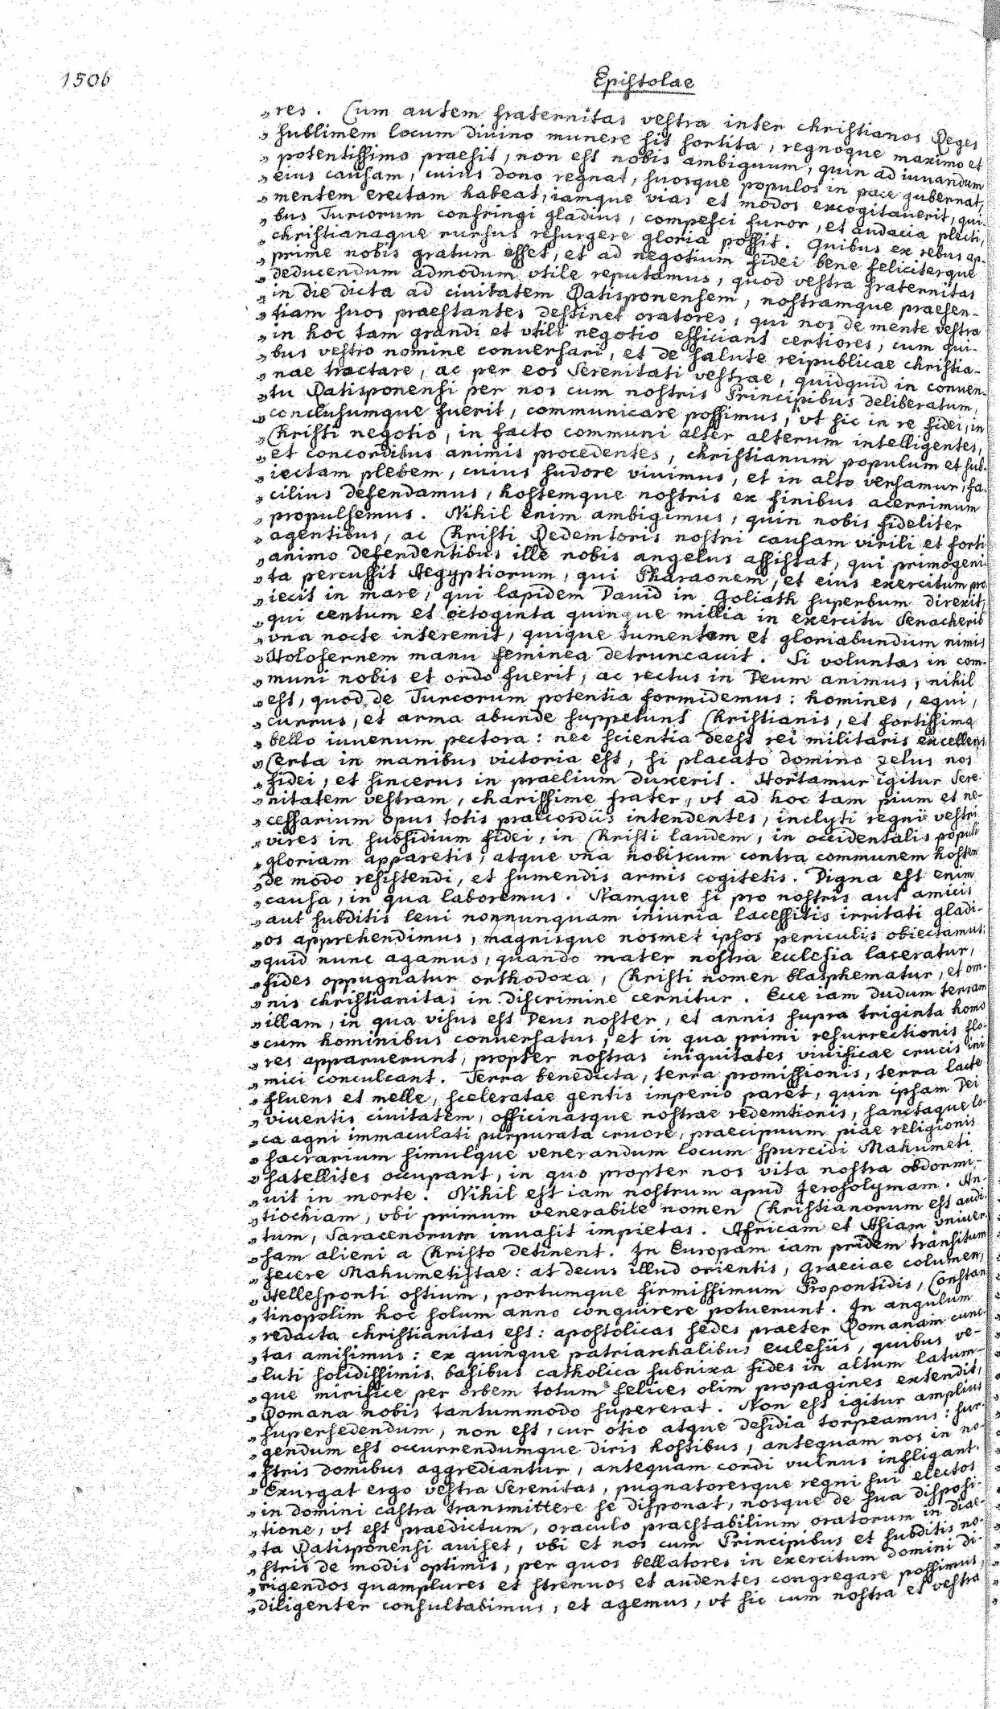 1506
Epistolae
„res. Cum autem fraternitas vestra inter christianos Reges
„sublimem locum diuino munere sit sortita, regnoque maximo et
„potentissimo praesit, non est nobis ambiguum, quin ad iuuandum
„eius causam, cuius dono regnat, suosque populos in pace gubernat,
„mentem erectam habeat, iamque vias et modos excogitauerit, qui-
„bus Turcorum confringi gladius, compesci furor, et audacia plecti,
„christianaque rursus resurgere gloria possit. Quibus ex rebus ap-
„prime nobis gratum esset, et ad negotium fidei bene feliciterque
„deducendum admodum vtile reputamus, quod vestra fraternitas
„in die dicta ad ciuitatem Ratisponensem, nostramque praesen-
„tiam suos praestantes destinet oratores, qui nos de mente vestra
„in hoc tam grandi et vtili negotio efficiant certiores, cum qui-
„bus vestro nomine conuersari, et de salute reipublicae christia-
„nae tractare, ac per eos Serenitati vestrae, quidquid in conuen-
„tu Ratisponensi per nos cum nostris Principibus deliberatum,
„conclusumque fuerit, communicare possimus, vt sic in re fidei, in
„Christi negotio, in facto communi alter alterum intelligentes,
„et concordibus animis procedentes, christianum populum et sub-
„iectam plebem, cuius sudore viuimus, et in alto versamur, fa-
„cilius defendamus, hostemque nostris ex finibus acerrimum
„propulsemus. Nihil enim ambigimus, quin nobis fideliter
„agentibus, ac Christi Redemtoris nostri causam virili et forti
„animo defendentibus ille nobis angelus assistat, qui primogeni-
„ta percussit Aegyptiorum, qui Pharaonem, et eius exercitum pro-
„iecit in mare, qui lapidem Dauid in Goliath superbum direxit,
„qui centum et octoginta quinque millia in exercitu Senacherib
„vna nocte interemit, quique tumentem et gloriabundum nimis
„Holofernem manu feminea detruncauit. Si voluntas in com-
„muni nobis et ordo fuerit, ac rectus in Deum animus, nihil
„est, quod de Turcorum potentia formidemus: homines, equi,
„currus, et arma abunde suppetunt Christianis, et fortissima
„bello iuuenum pectora: nec scientia deest rei militaris excellens
„Certa in manibus victoria est, si placato domino zelus nos
„fidei, et sincerus in praelium duxerit. Hortamur igitur Sere-
„nitatem vestram, charissime frater, vt ad hoc tam pium et ne-
„cessarium opus totis praecordiis intendentes, inclyti regni vestri
„vires in subsidium fidei, in Christi laudem, in occidentalis populi
„gloriam apparetis, atque vna nobiscum contra communem hostem
„de modo resistendi, et sumendis armis cogitetis. Digna est enim
„causa, in qua laboremus. Namque si pro nostris aut amicis
„aut subditis leui nonnunquam iniuria lacessitis irritati gladi-
„os apprehendimus, magnisque nosmet ipsos periculis obiectamus;
„quid nunc agamus, quando mater nostra ecclesia laceratur,
„fides oppugnatur orthodoxa, Christi nomen blasphematur, et om-
„nis christianitas in discrimine cernitur. Ecce iam dudum terram
„illam, in qua visus est Deus noster, et annis supra triginta homo
„cum hominibus conuersatus, et in qua primi resurrectionis flo-
„res apparuerunt, propter nostras iniquitates viuificae crucis ini-
„mici conculcant. Terra benedicta, terra promissionis, terra lacte
„fluens et melle, sceleratae gentis imperio paret, quin ipsam Dei
„viuentis ciuitatem, officinasque nostrae redemtionis, sanctaque lo-
„ca agni immaculati purpurata cruore, praecipuum piae religionis
„sacrarium simulque venerandum locum spurcidi Mahumeti
„satellites occupant, in quo propter nos vita nostra obdormi-
„uit in morte. Nihil est iam nostrum apud Jerosolymam. An-
„tiochiam, vbi primum venerabile nomen Christianorum est audi-
„tum, Saracenorum inuasit impietas. Africam et Asiam vniuer-
„sam alieni a Christo detinent. In Europam iam pridem transitum
„fecere Mahumetistae: at decus illud orientis, Graeciae columen,
„Hellesponti ostium, portumque firmissimum Propontidis, Constan-
„tinopolim hoc solum anno conquirere potuerunt. In angulum
„redacta christianitas est: apostolicas sedes praeter Romanam cunc-
„tas amisimus: ex quinque patriarchalibus ecclesiis, quibus ve-
„luti solidissimis basibus catholica subnixa fides in altum latum-
„que mirifice per orbem totum felices olim propagines extendit,
„Romana nobis tantummodo supererat. Non est igitur amplius
„supersedendum, non est, cur otio atque desidia torpeamus: sur-
„gendum est occurrendumque diris hostibus, antequam nos in no-
„stris domibus aggrediantur, antequam cordi vulnus infligant.
„Exurgat ergo vestra Serenitas, pugnatoresque regni sui electos
„in domini castra transmittere se disponat, nosque de sua disposi-
„tione, vt est praedictum, oraculo praestabilium oratorum in diae-
„ta Ratisponensi auiset, vbi et nos cum Principibus et subditis no-
„stris de modis optimis, per quos bellatores in exercitum domini di-
„rigendos quamplures et strenuos et audentes congregare possimus,
„diligenter consultabimus, et agemus, vt sic cum nostra et vestra